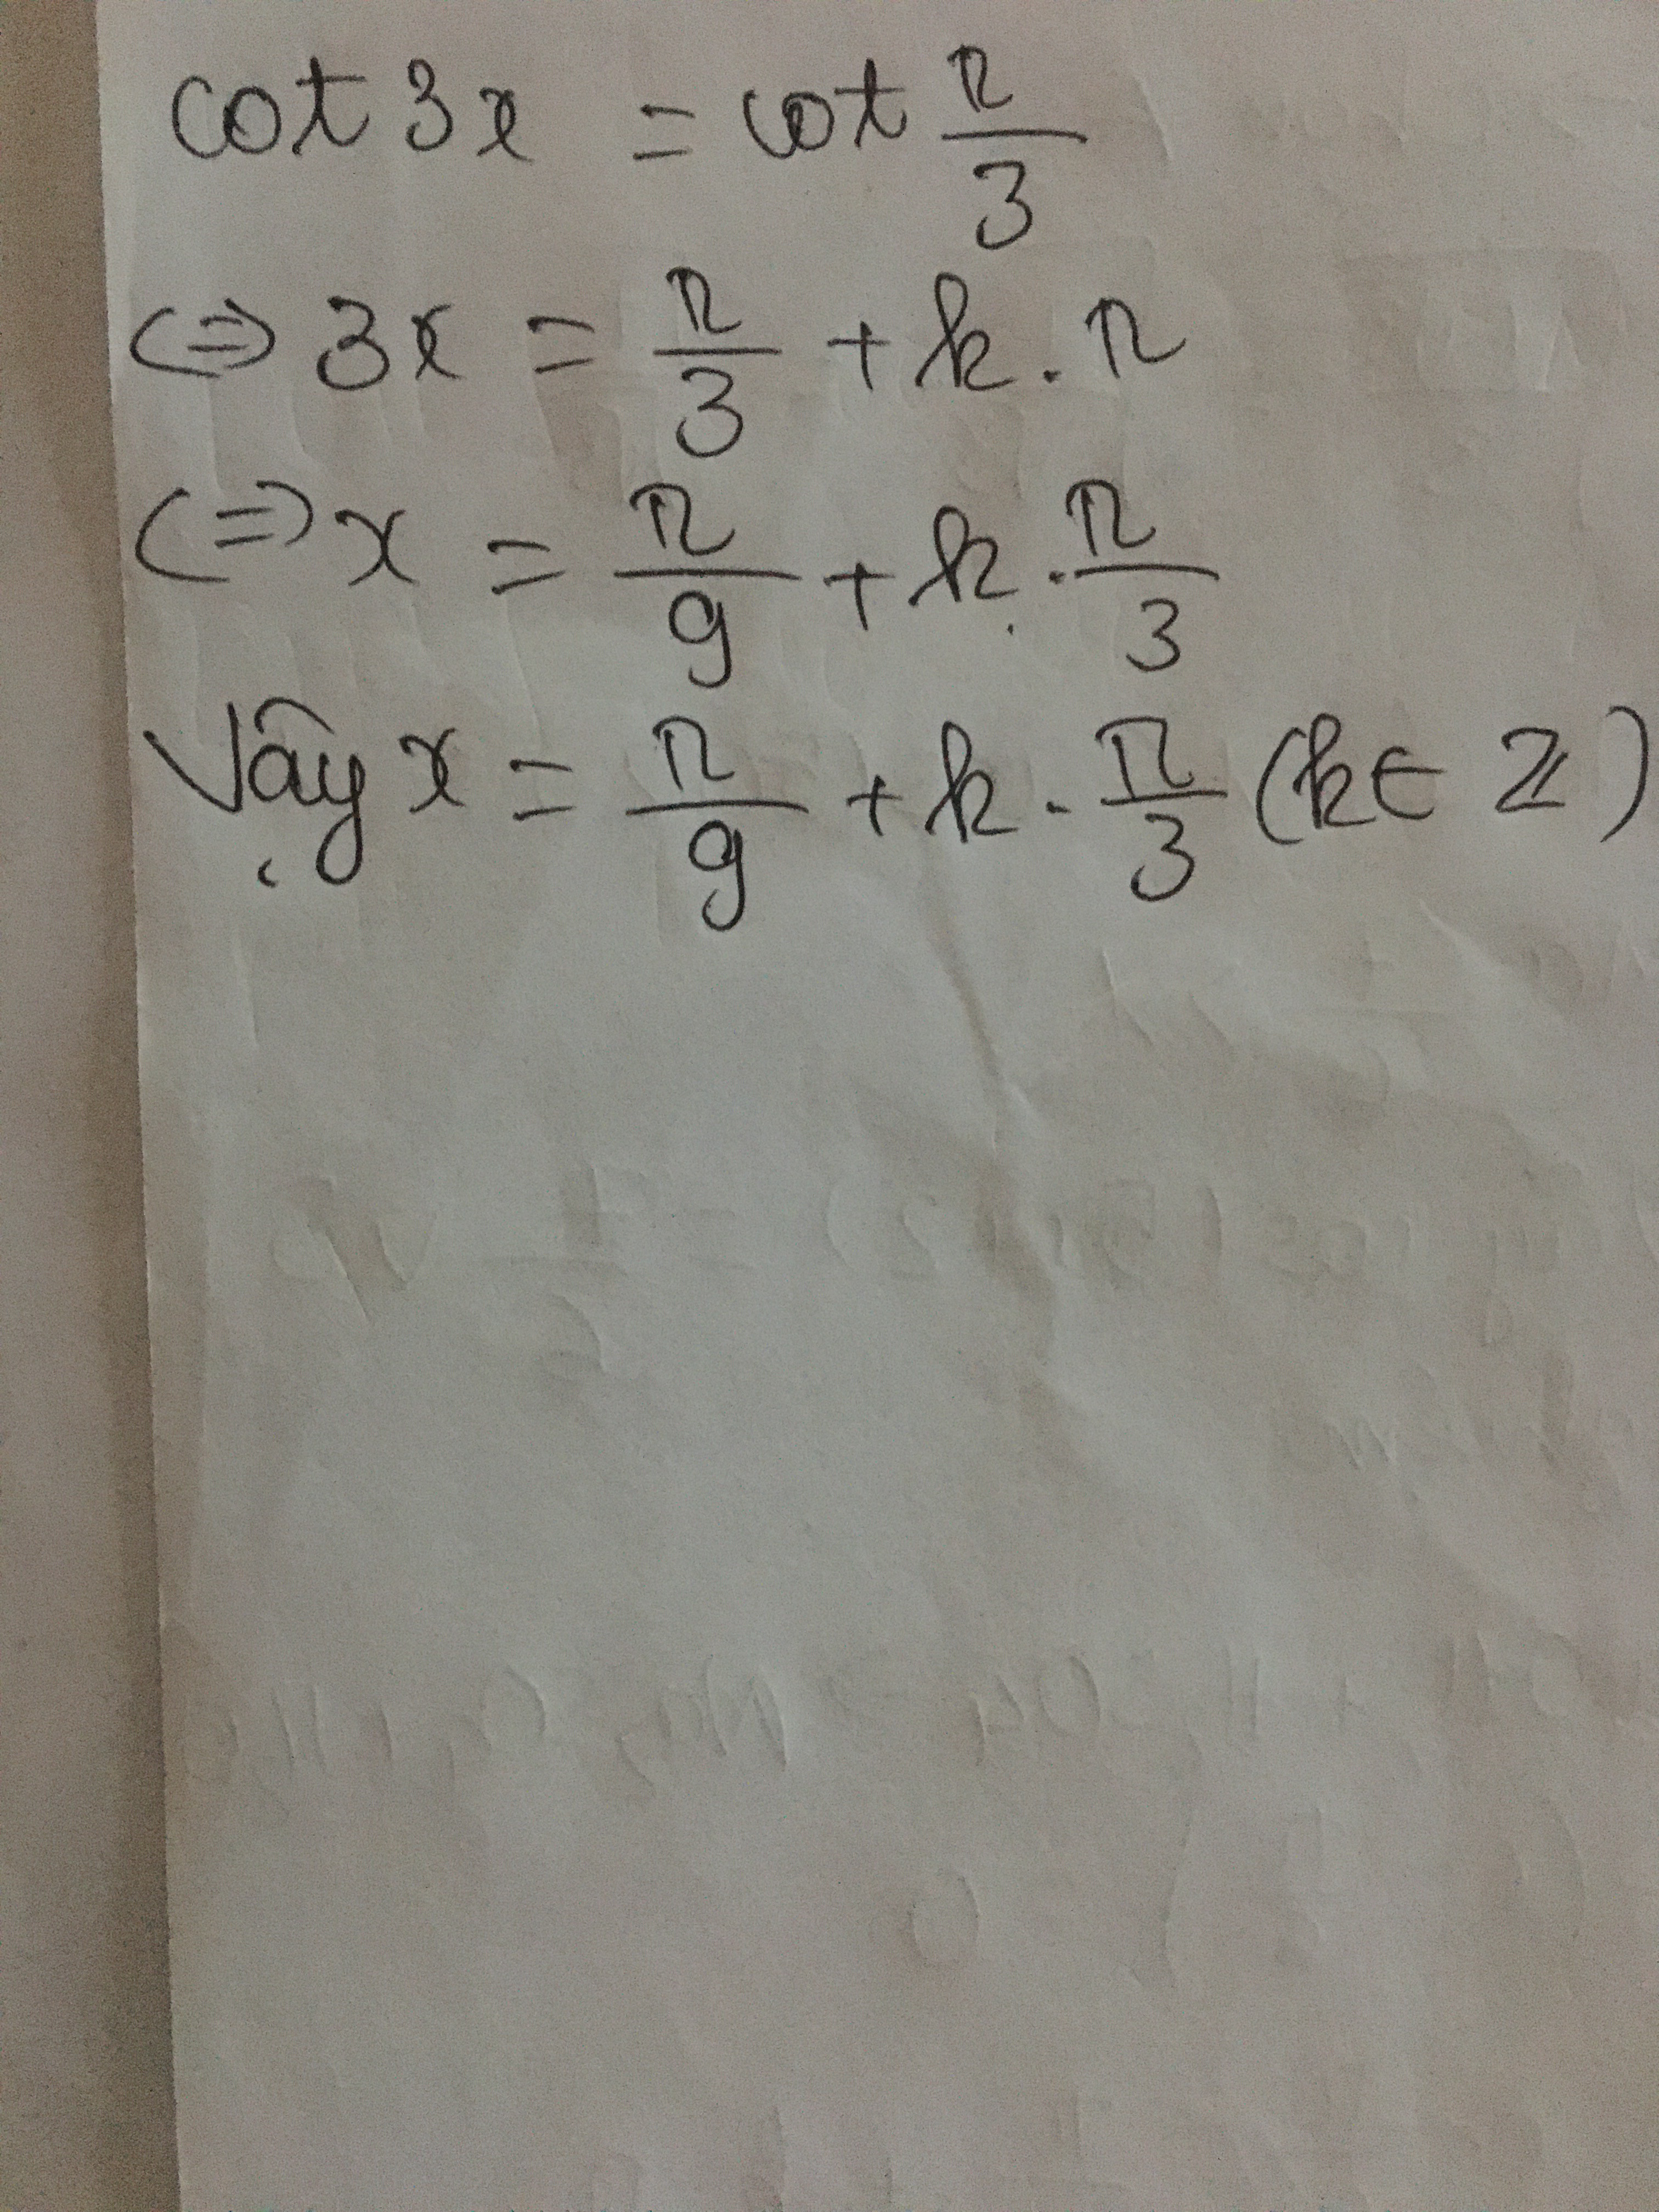 cot 3x = cot π/3
<=> 3x = π/3 + k . π
<=> x = π/9 + k . π/3
Vậy x = π/9 + k . π/3 (k ∈ ℤ)